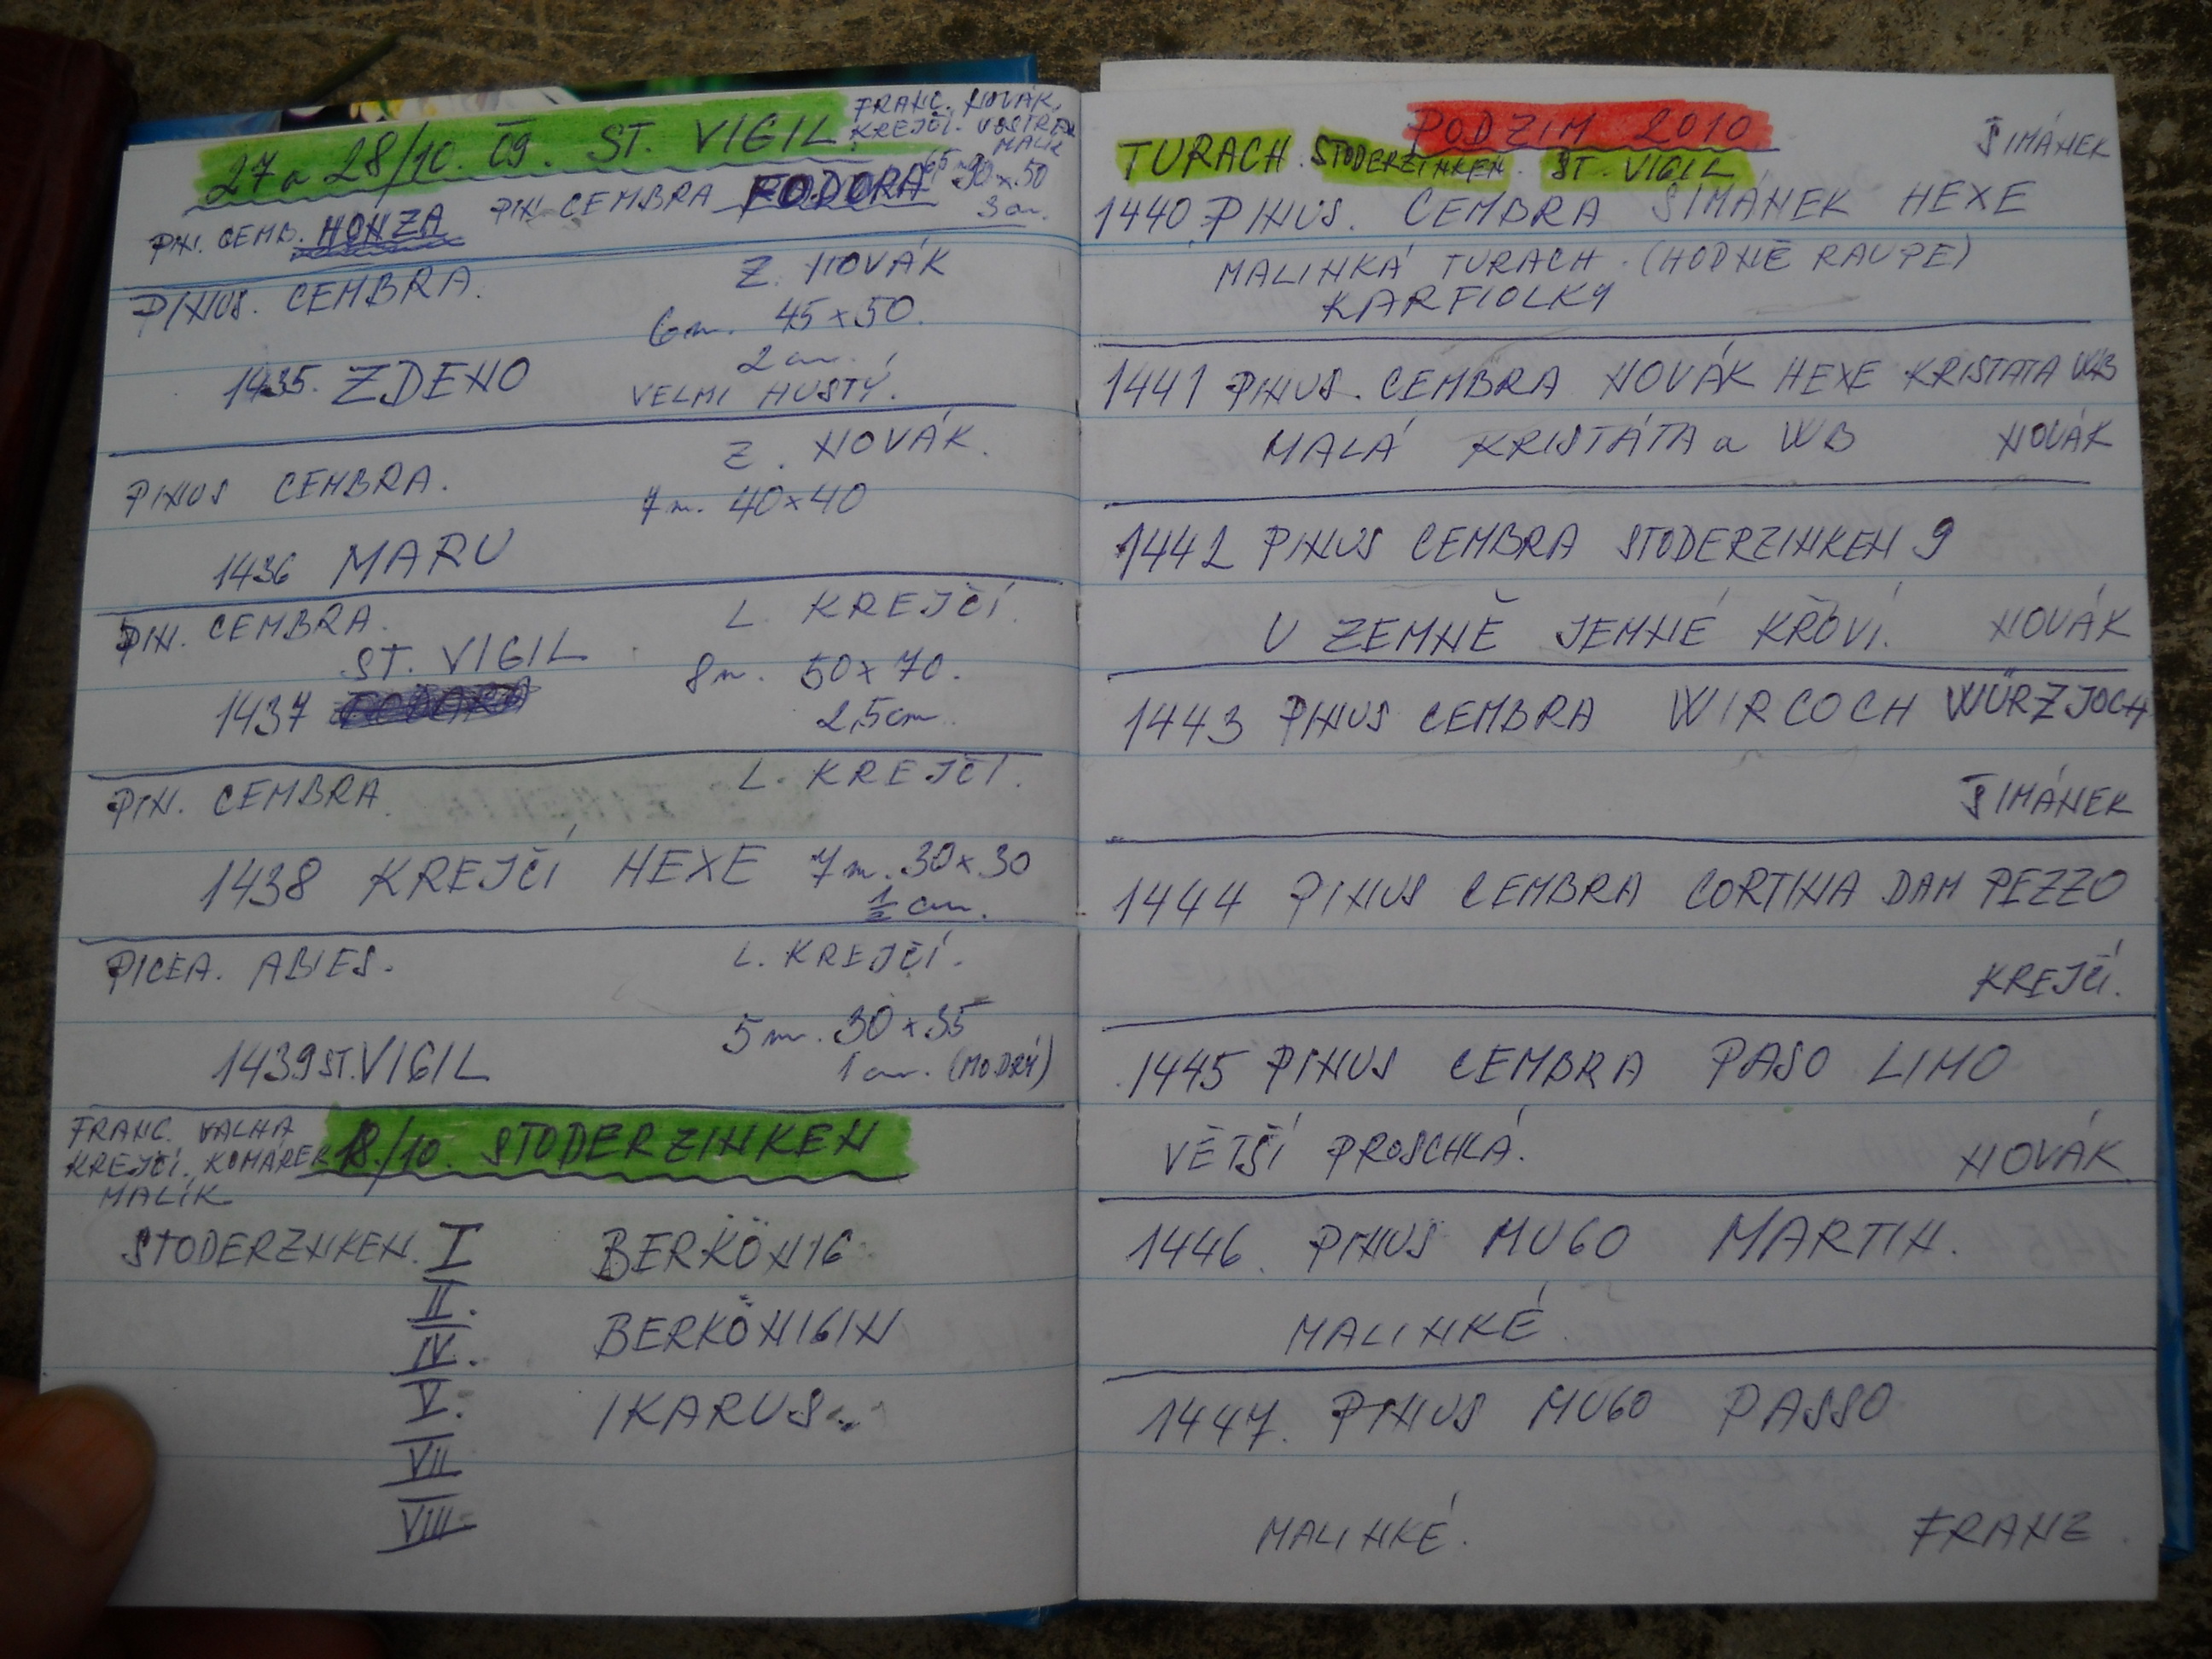 27 a 28/10. 09. ST. VIGIL
FRANC. NOVÁK,
KREJČÍ. VOSTŘEL
MALÍK
PIN. CEMB. HONZA PIN. CEMBRA FODORA 65 90 x 50
3 cm.
PINUS. CEMBRA. Z. NOVÁK
6 m. 45 x 50.
2 cm.
1435. ZDENO VELMI HUSTÝ.
PINUS CEMBRA. Z. NOVÁK.
7 m. 40 x 40
1436 MARU
PIN. CEMBRA. L. KREJČÍ.
ST. VIGIL 8 m. 50 x 70.
1437 2,5 cm.
PIN. CEMBRA L. KREJČÍ.
1438 KREJČÍ HEXE 7 m. 30 x 30
1/2 cm.
PICEA. ABIES. L. KREJČÍ.
5 m. 30 x 35
1439 ST. VIGIL 1 cm. (MODRÝ)
FRANC. VALHA
KREJČÍ. KOMÁREK
MALÍK
18./10. STODERZINKEN
STODERZNKEN. I BERKÖNIG
II.
IV. BERKÖNIGIN
V. IKARUS.
VII
VIII
PODZIM 2010
TURACH. STODERZINKEN. ST. VIGIL ŠIMÁNEK
1440 PINUS. CEMBRA ŠIMÁNEK HEXE
MALINKÁ TURACH. (HODNĚ RAUPE)
KARFIOLKY
1441 PINUS. CEMBRA NOVÁK HEXE KRISTATA WB
MALÁ KRISTÁTA a WB NOVÁK
1442 PINUS CEMBRA STODERZINKEN 9
U ZEMNĚ JEMNÉ KŘOVÍ. NOVÁK
1443 PINUS CEMBRA WIRCOCH WÜRZJOCH
ŠIMÁNEK
1444 PINUS CEMBRA CORTINA DAM PEZZO
KREJČÍ.
1445 PINUS CEMBRA PASO LIMO
VĚTŠÍ PROSCHLÁ. NOVÁK
1446. PINUS MUGO MARTIN.
MALINKÉ.
1447. PINUS MUGO PASSO
MALINKÉ. FRANZ.